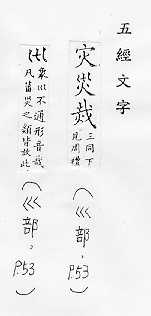 五經文字
灾災烖 三同下見周禮（巛部，P.53）
巛 象川不通形音哉凡菑災之類皆放此（巛部，P.53）